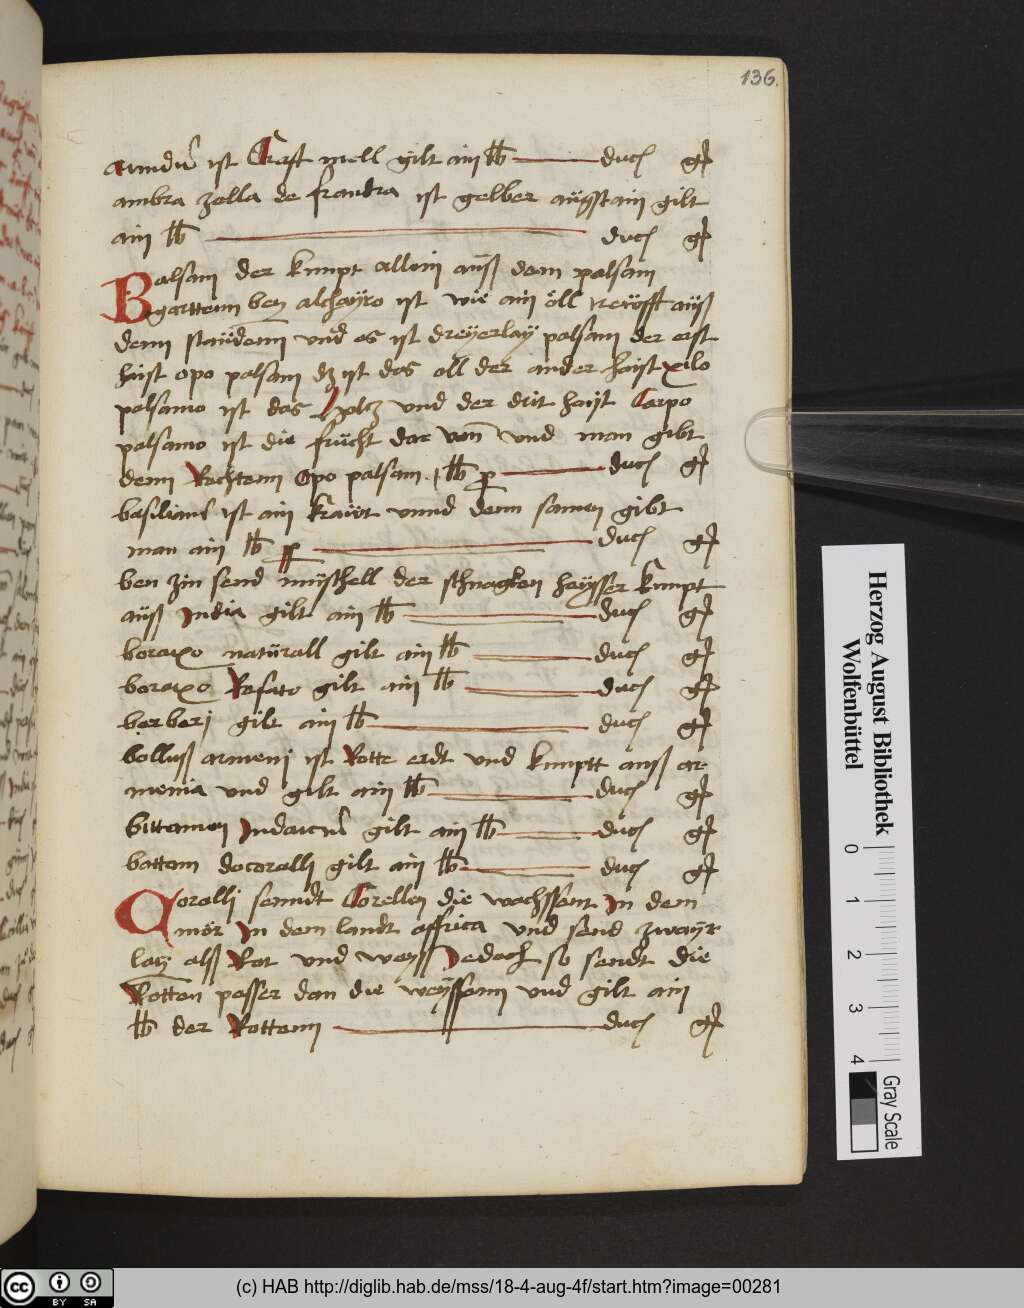 136.
amidum ist Craft mell gilt ain lb duc gr
ambra zalla de frandra ist gelber aügstain gilt
ain lb duc gr
Balsam der kumpt allein aüß dem palsam
gartten beÿ alchaÿro ist wie ain öll aüß
denn staüdenn vnd es ist dreÿerlaÿ palsam der erst
haist opo palsam dz ist das oll der ander haist xilo
palsamo ist das Holtz vnd der drit haist Carpo
palsamo ist die frücht dar von vnd man gibt
denn Rechtenn Opo palsam 1 lb p duc gr
basilicum ist ain kraüt vnnd denn samen gibt
man ain lb p duc gr
ben zin send müschell der schnagken heüsser kumpt
aüß India gilt ain lb duc gr
boraxo natürall gilt ain lb duc gr
boraxo Rafato gilt ain lb duc gr
berberj gilt ain lb duc gr
bolluß armenj ist Rotte erdt vnd kumptt auß ar
menia vnd gilt ain lb duc gr
bittamen Judaicum gilt ain lb duc gr
bottam docoralli gilt ain lb duc gr
Coralli senndt Corellen die wachssent In dem
mör In dem landt affrica vnd send zwaÿr
laÿ alß Rot vnd weÿß Jedoch so sendt die
Rotten passer dan die weÿssenn vnd gilt ain
lb der Rottenn duc gr
Herzog August Bibliothek
Wolfenbüttel
0 1 2 3 4
Gray Scale
cc BY SA
(c) HAB http://diglib.hab.de/mss/18-4-aug-4f/start.htm?image=00281